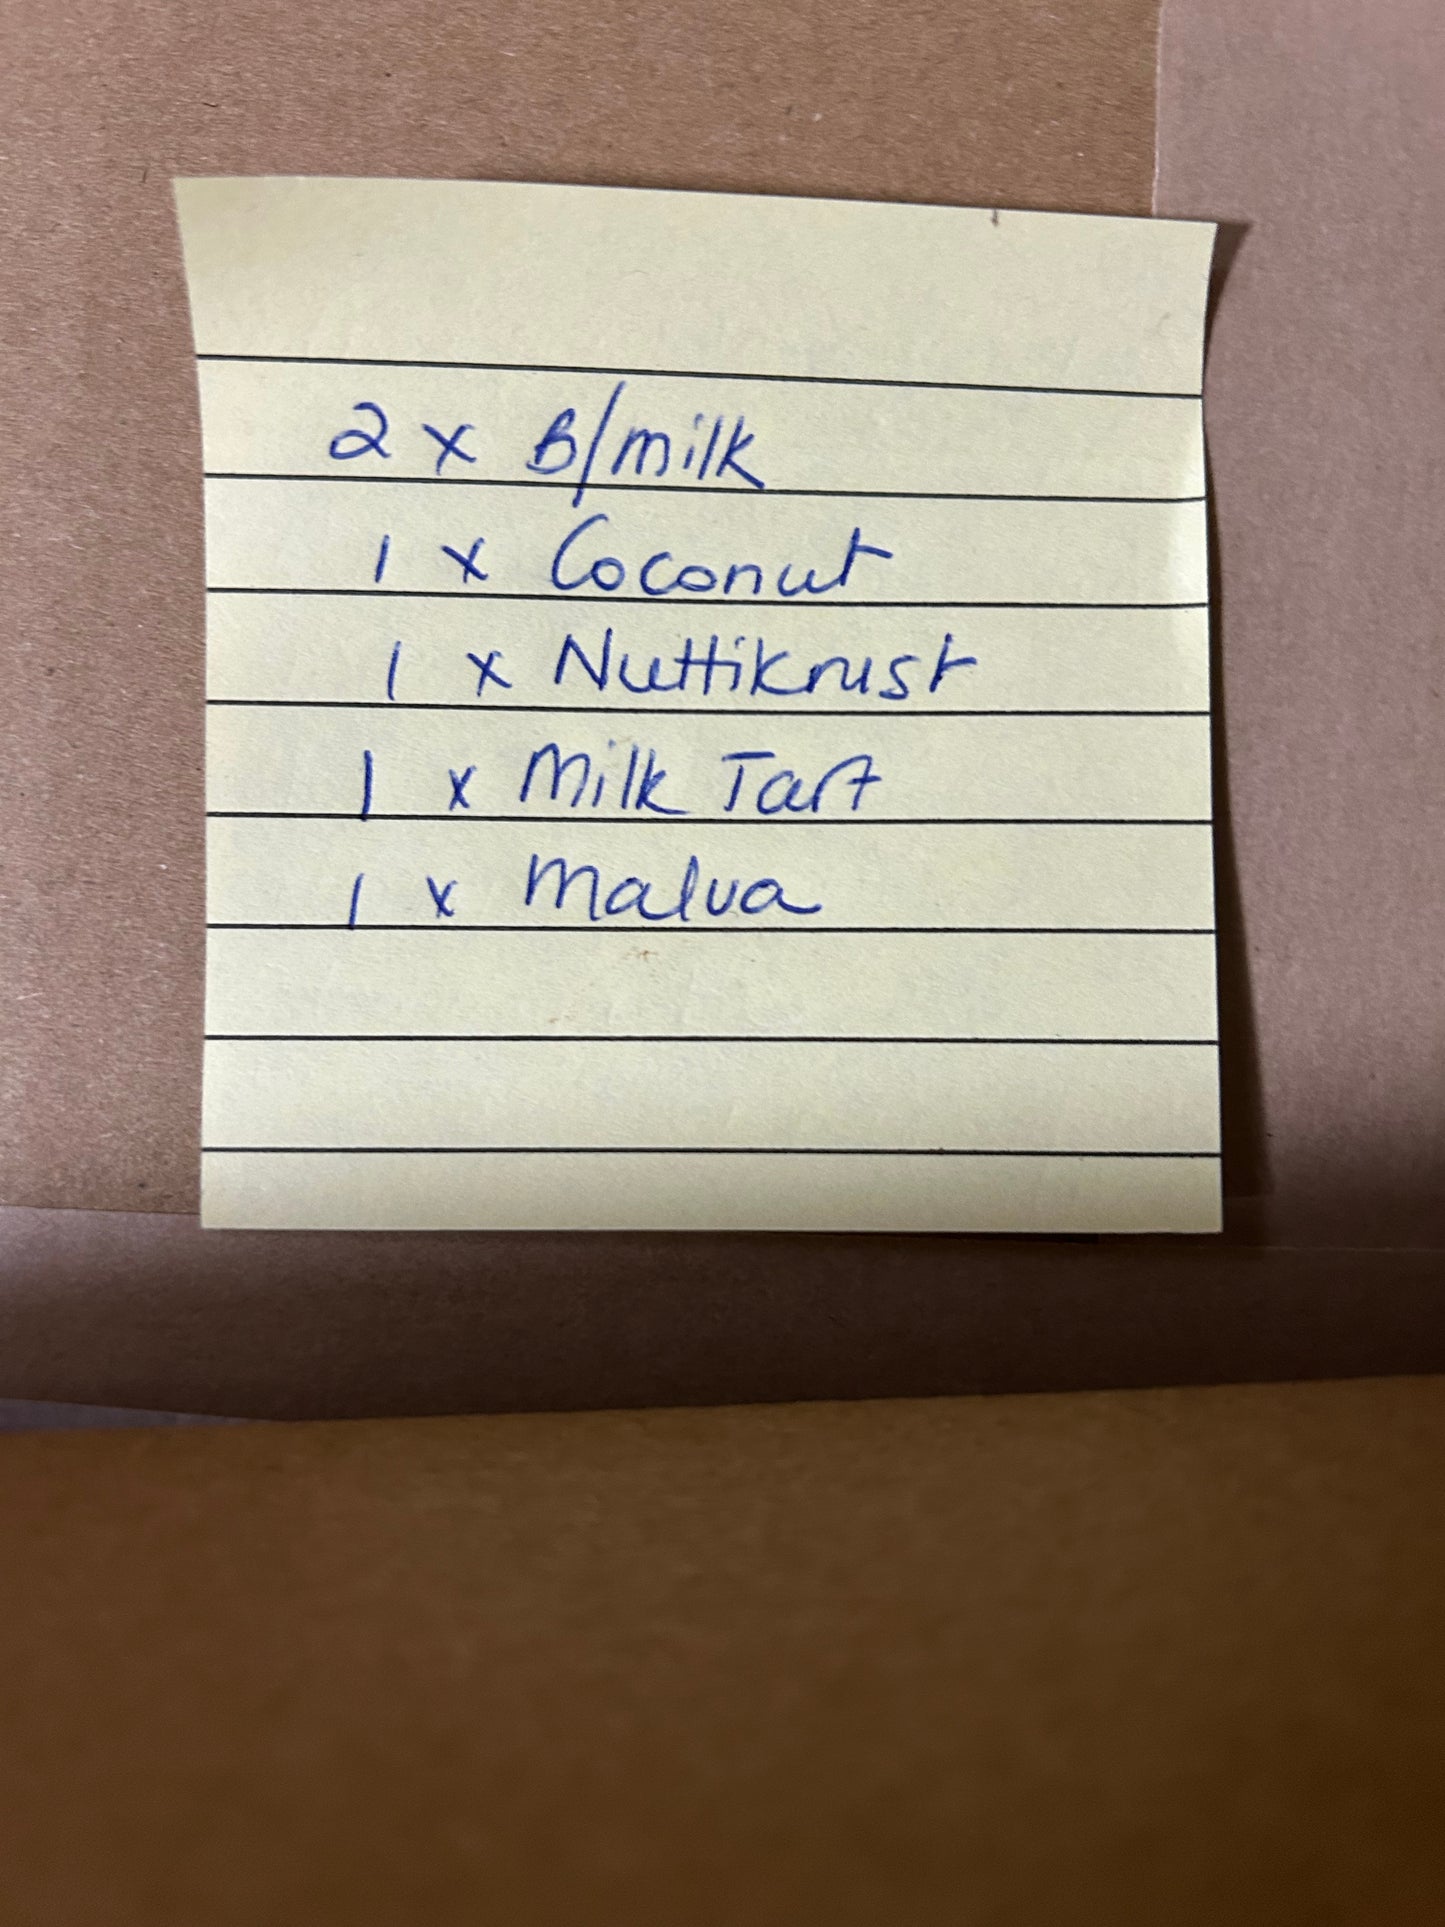 2 x B/milk
1 x Coconut
1 x Nuttikrust
1 x Milk Tart
1 x Malva